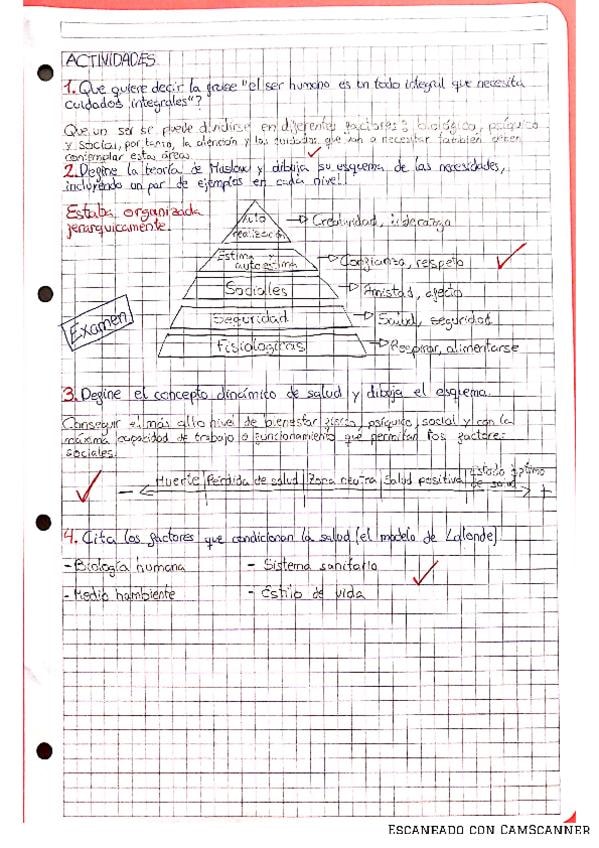 ACTIVIDADES
1. Que quiere decir la frase "el ser humano es un todo integral que necesita
cuidados integrales"?
Que un ser se puede dividirse en diferentes factores: biológico, psíquico
y social, por tanto, la atención y los cuidados que van a necesitar también deben
contemplar estas áreas.
2. Define la teoría de Maslow y dibuja su esquema de las necesidades,
incluyendo un par de ejemplos en cada nivel.
Estaba organizada
jerarquicamente.
Auto
realización
Creatividad, liderazgo
Estima y
autoestima
Confianza, respeto
Sociales
Amistad, afecto
Seguridad
Salud, seguridad
Examen
Fisiologicas
Respirar, alimentarse
3. Define el concepto dinámico de salud y dibuja el esquema.
Conseguir el más alto nivel de bienestar físico, psíquico, social y con la
máxima capacidad de trabajo o funcionamiento que permitan los factores
sociales.
Muerte Pérdida de salud Zona neutra Salud positiva Estado óptimo
de salud
- +
4. Cita los factores que condicionan la salud (el modelo de Lalonde)
- Biología humana - Sistema sanitario
- Medio hambiente - Estilo de vida
Escaneado con CamScanner